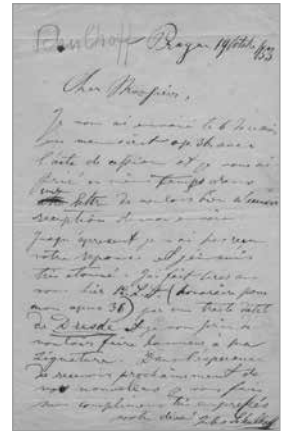 Schulhoff Prague 19 Octobre 53
Cher Monsieur,
Je vous ai envoyé le 6
un manuscript op 36 avec
l'acte de cession et je vous ai
prié en même temps dans
ma lettre de vouloir bien
réception de mon envoi
jusqu'à présent je n'ai pas reçu
votre réponse et j'en suis
très étonné. J'ai fait
hier (honoraire pour
mon opus 36) par une traite
de Dresde et je vous prie de
vouloir faire honneur à ma
signature. Dans l'espérance
de recevoir prochainement de
vos nouvelles je vous fais
mes compliments très empressés
votre dévoué Schulhoff